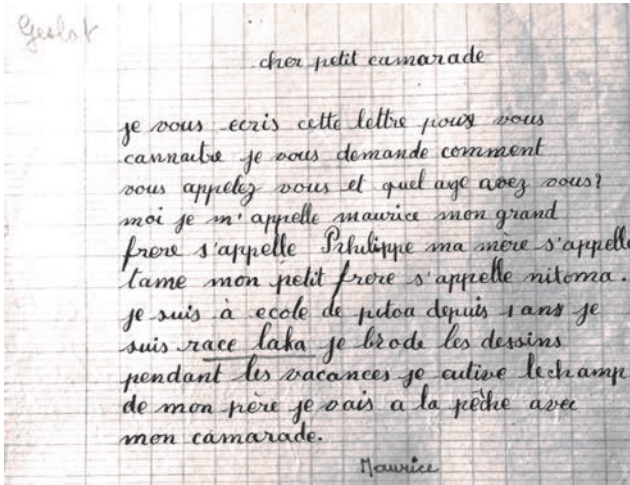 Geslot
cher petit camarade
je vous ecris cette lettre pour vous
cannaitre je vous demande comment
vous appelez vous et quel age avez vous?
moi je m'appelle maurice mon grand
frere s'appelle Philippe ma mère s'appelle
tame mon petit frere s'appelle nitoma.
je suis à ecole de pitoa depuis 1 ans je
suis race laka je brode les dessins
pendant les vacances je cutive le champ
de mon père je vais a la pèche avec
mon camarade.
Maurice